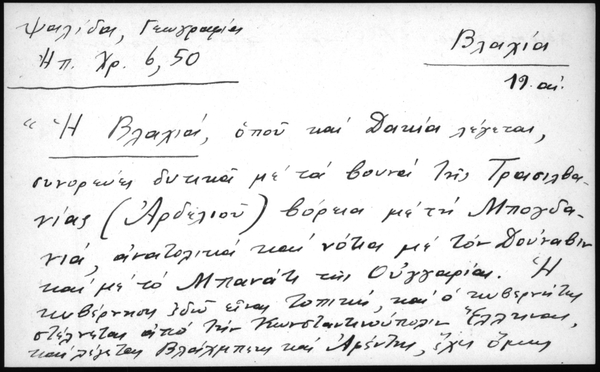 Ψαλίδα, Γεωγραφία
Ἠπ. Χρ. 6, 50
Βλαχία
19. αἰ.
“ Ἡ Βλαχιά, ὁποῦ καί Δακία λέγεται,
συνορεύει δυτικά μέ τά βουνά τῆς Τρασιλβα-
νίας (Ἀρδελιοῦ) βόρεια μέ τή Μπογδα-
νιά, ἀνατολικά καί νότια μέ τόν Δούναβιν
καί μέ τό Μπανάτι τῆς Οὐγγαρίας. Ἡ
κυβέρνηση ἐδῶ εἶναι τοπική, καί ὁ κυβερνήτης
στέλνεται ἀπό τήν Κωνσταντινούπολιν Ἕλληνας,
καί λέγεται Βλάχμπεης καί Ἀφέντης, ἔχει ὅμως